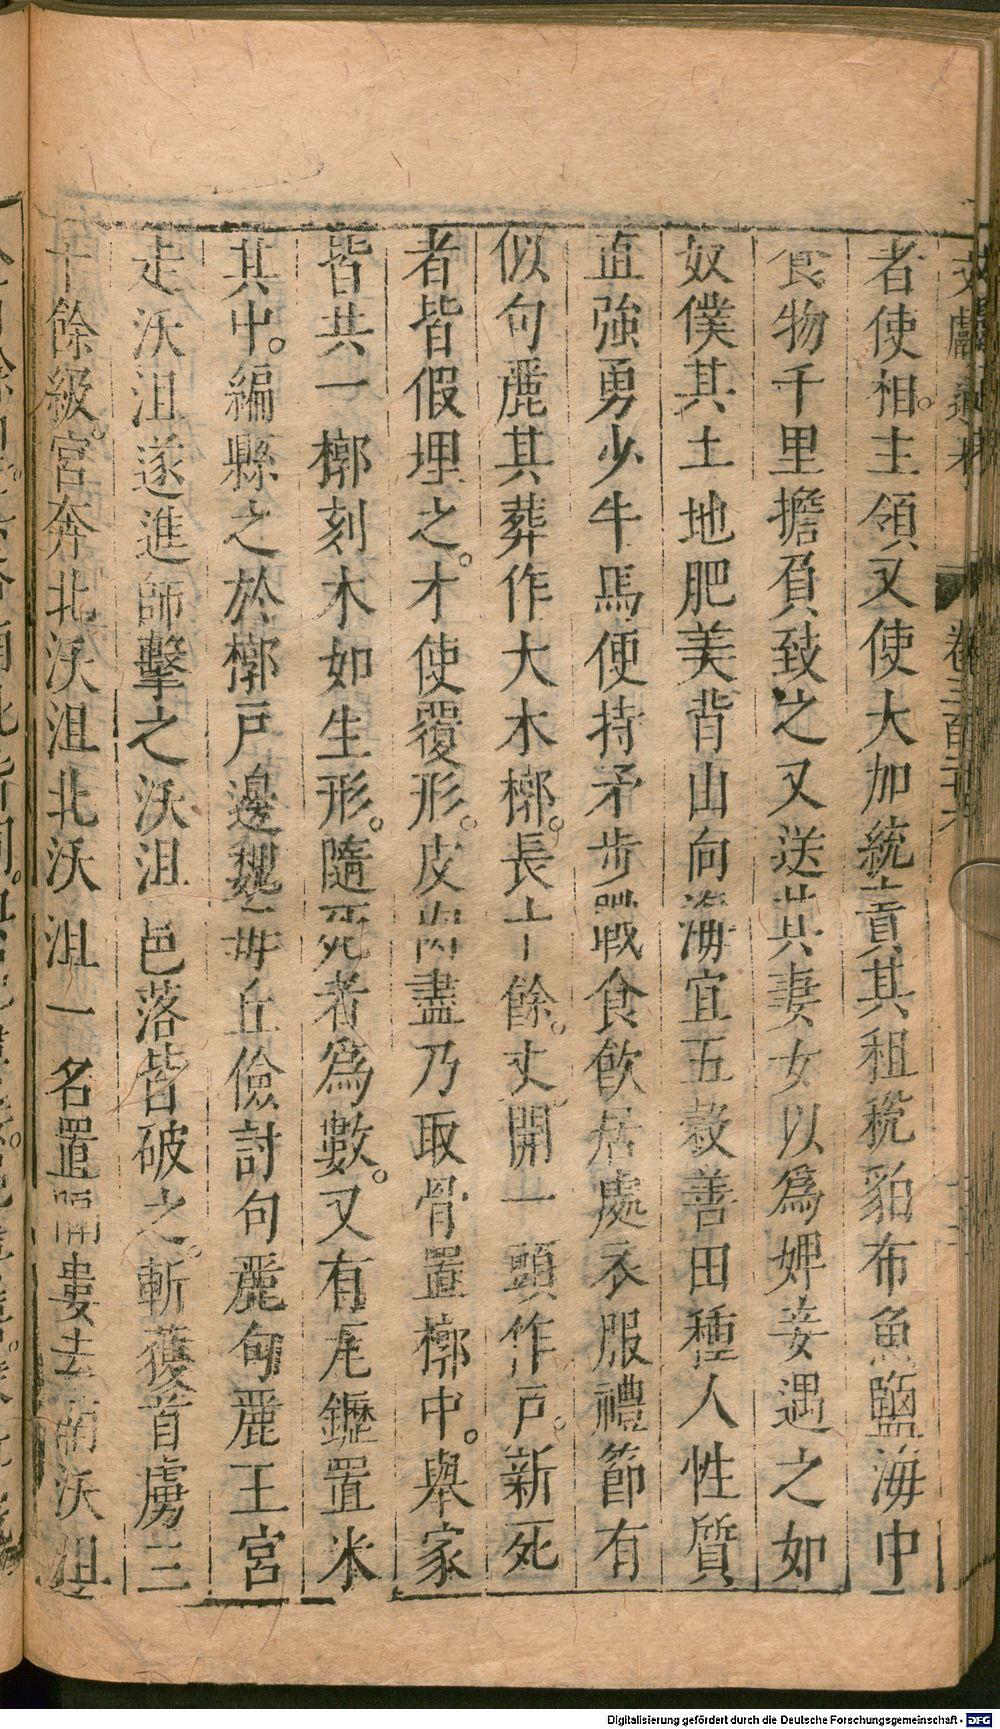 者使相。主領又使大加統責其租稅貊布魚鹽海中
食物千里擔負致之又送其妻女以爲婢妾遇之如
奴僕其土地肥美背山向海宜五穀善田種人性質
直強勇少牛馬便持矛步戰食飲居處衣服禮節有
似句麗其葬作大木槨。長十餘。丈開一頭作戸。新死
者皆假埋之。才使覆形。皮肉盡乃取骨置槨中。舉家
皆共一槨刻木如生形。隨死者爲數。又有瓦䥶置米
其中。編縣之於槨戸邊魏毋丘儉討句麗句麗王宮
走沃沮遂進師擊之沃沮邑落皆破之。斬獲首虜三
千餘級。宮奔北沃沮北沃沮一名置溝婁去南沃沮
文獻通考 卷三百二十六
Digitalisierung gefördert durch die Deutsche Forschungsgemeinschaft - DFG